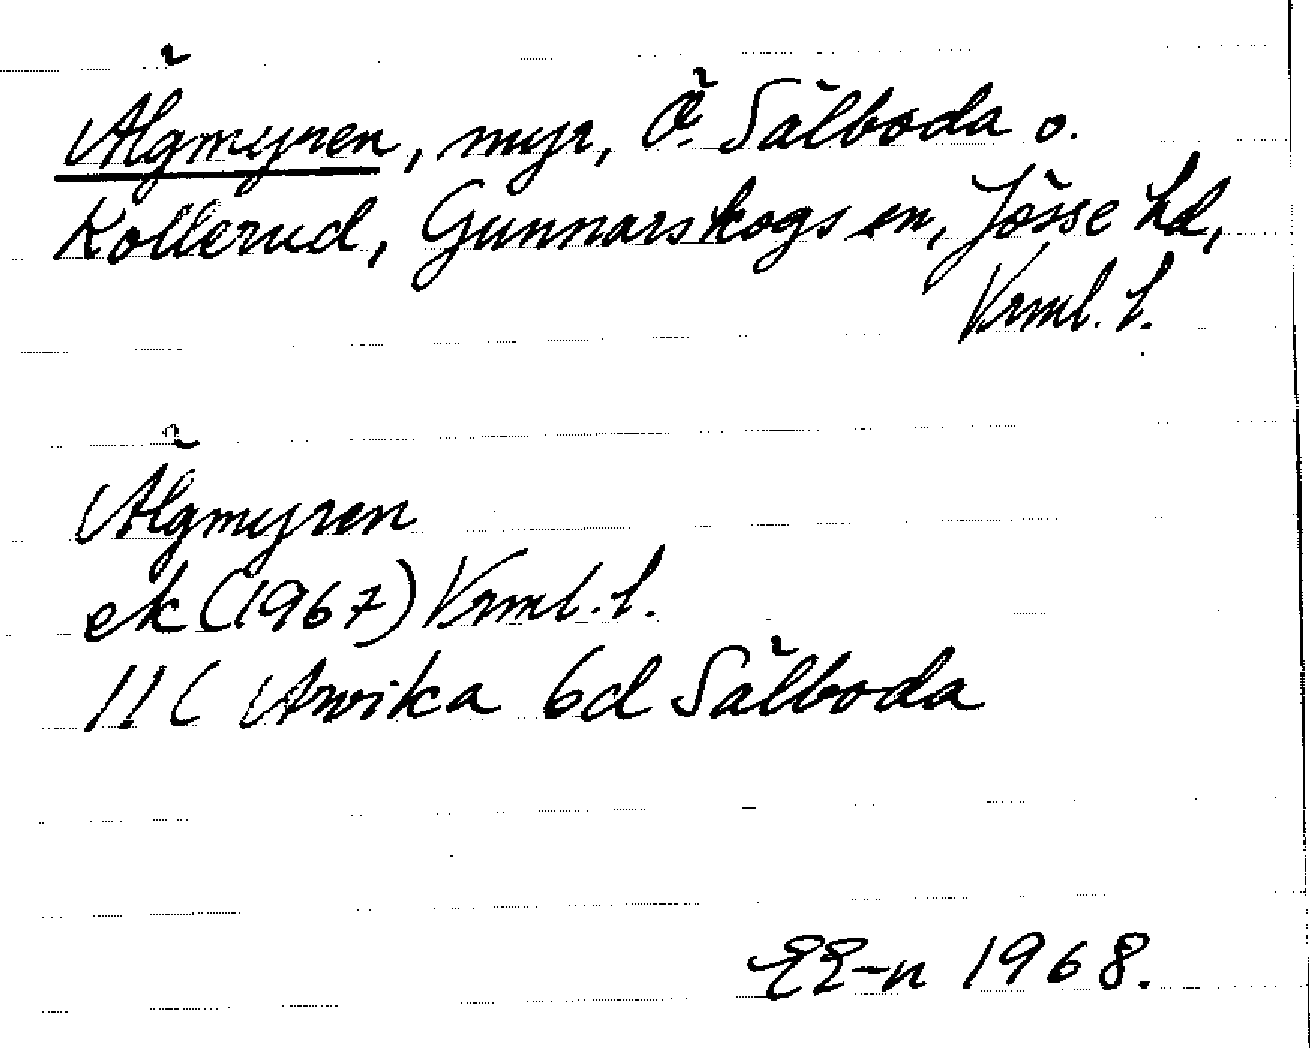 Älgmyren, myr, Ö. Sälboda o.
Kollerud, Gunnarskogs sn, Jösse hd,
Vrml. l.
Älgmyren
ek (1967) Vrml. l.
11C Arvika 6d Sälboda
EE-n 1968.